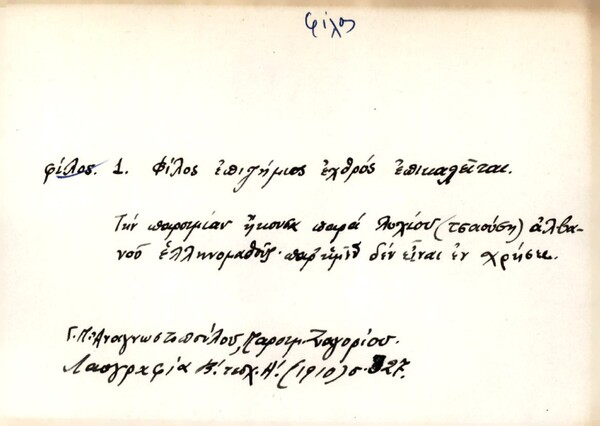 φίλος
φίλος. 1. Φίλος ἐπιζήμιος ἐχθρός ἐπικαλεῖται.
Τήν παροιμίαν ἤκουσα παρά λοχίου (τσαούση) ἀλβα-
νοῦ ἑλληνομαθοῦς· παρ' ἡμῖν δέν εἶναι ἐν χρήσει.
Γ. Π. Ἀναγνωστοπούλου, Παροιμ. Ζαγορίου.
Λαογραφία Β'. τευχ. Α'. (1910) σ. 327.